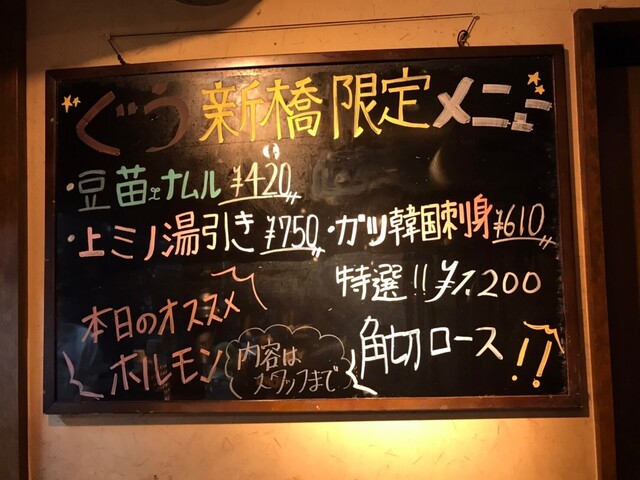 ぐう 新橋限定メニュー
・豆苗ナムル ¥420
・上ミノ湯引き ¥750
・ガツ韓国刺身 ¥610
本日のオススメ
ホルモン
内容は
スタッフまで
特選!! ¥1,200
角切ロース!!